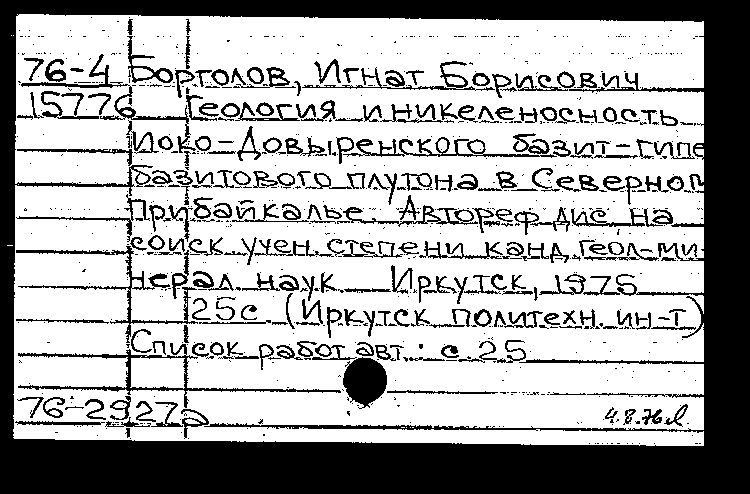 76-4 Борголов, Игнат Борисович
15776 Геология и никеленосность
Йоко-Довыренского базит-гипе
базитового плутона в Северном
Прибайкалье. Автореф. дис. на
соиск. учен. степени канд. геол-ми-
нерал. наук Иркутск, 1975
25с. (Иркутск. политехн. ин-т)
Список работ авт.: с. 25
76-2927а
4.8.76